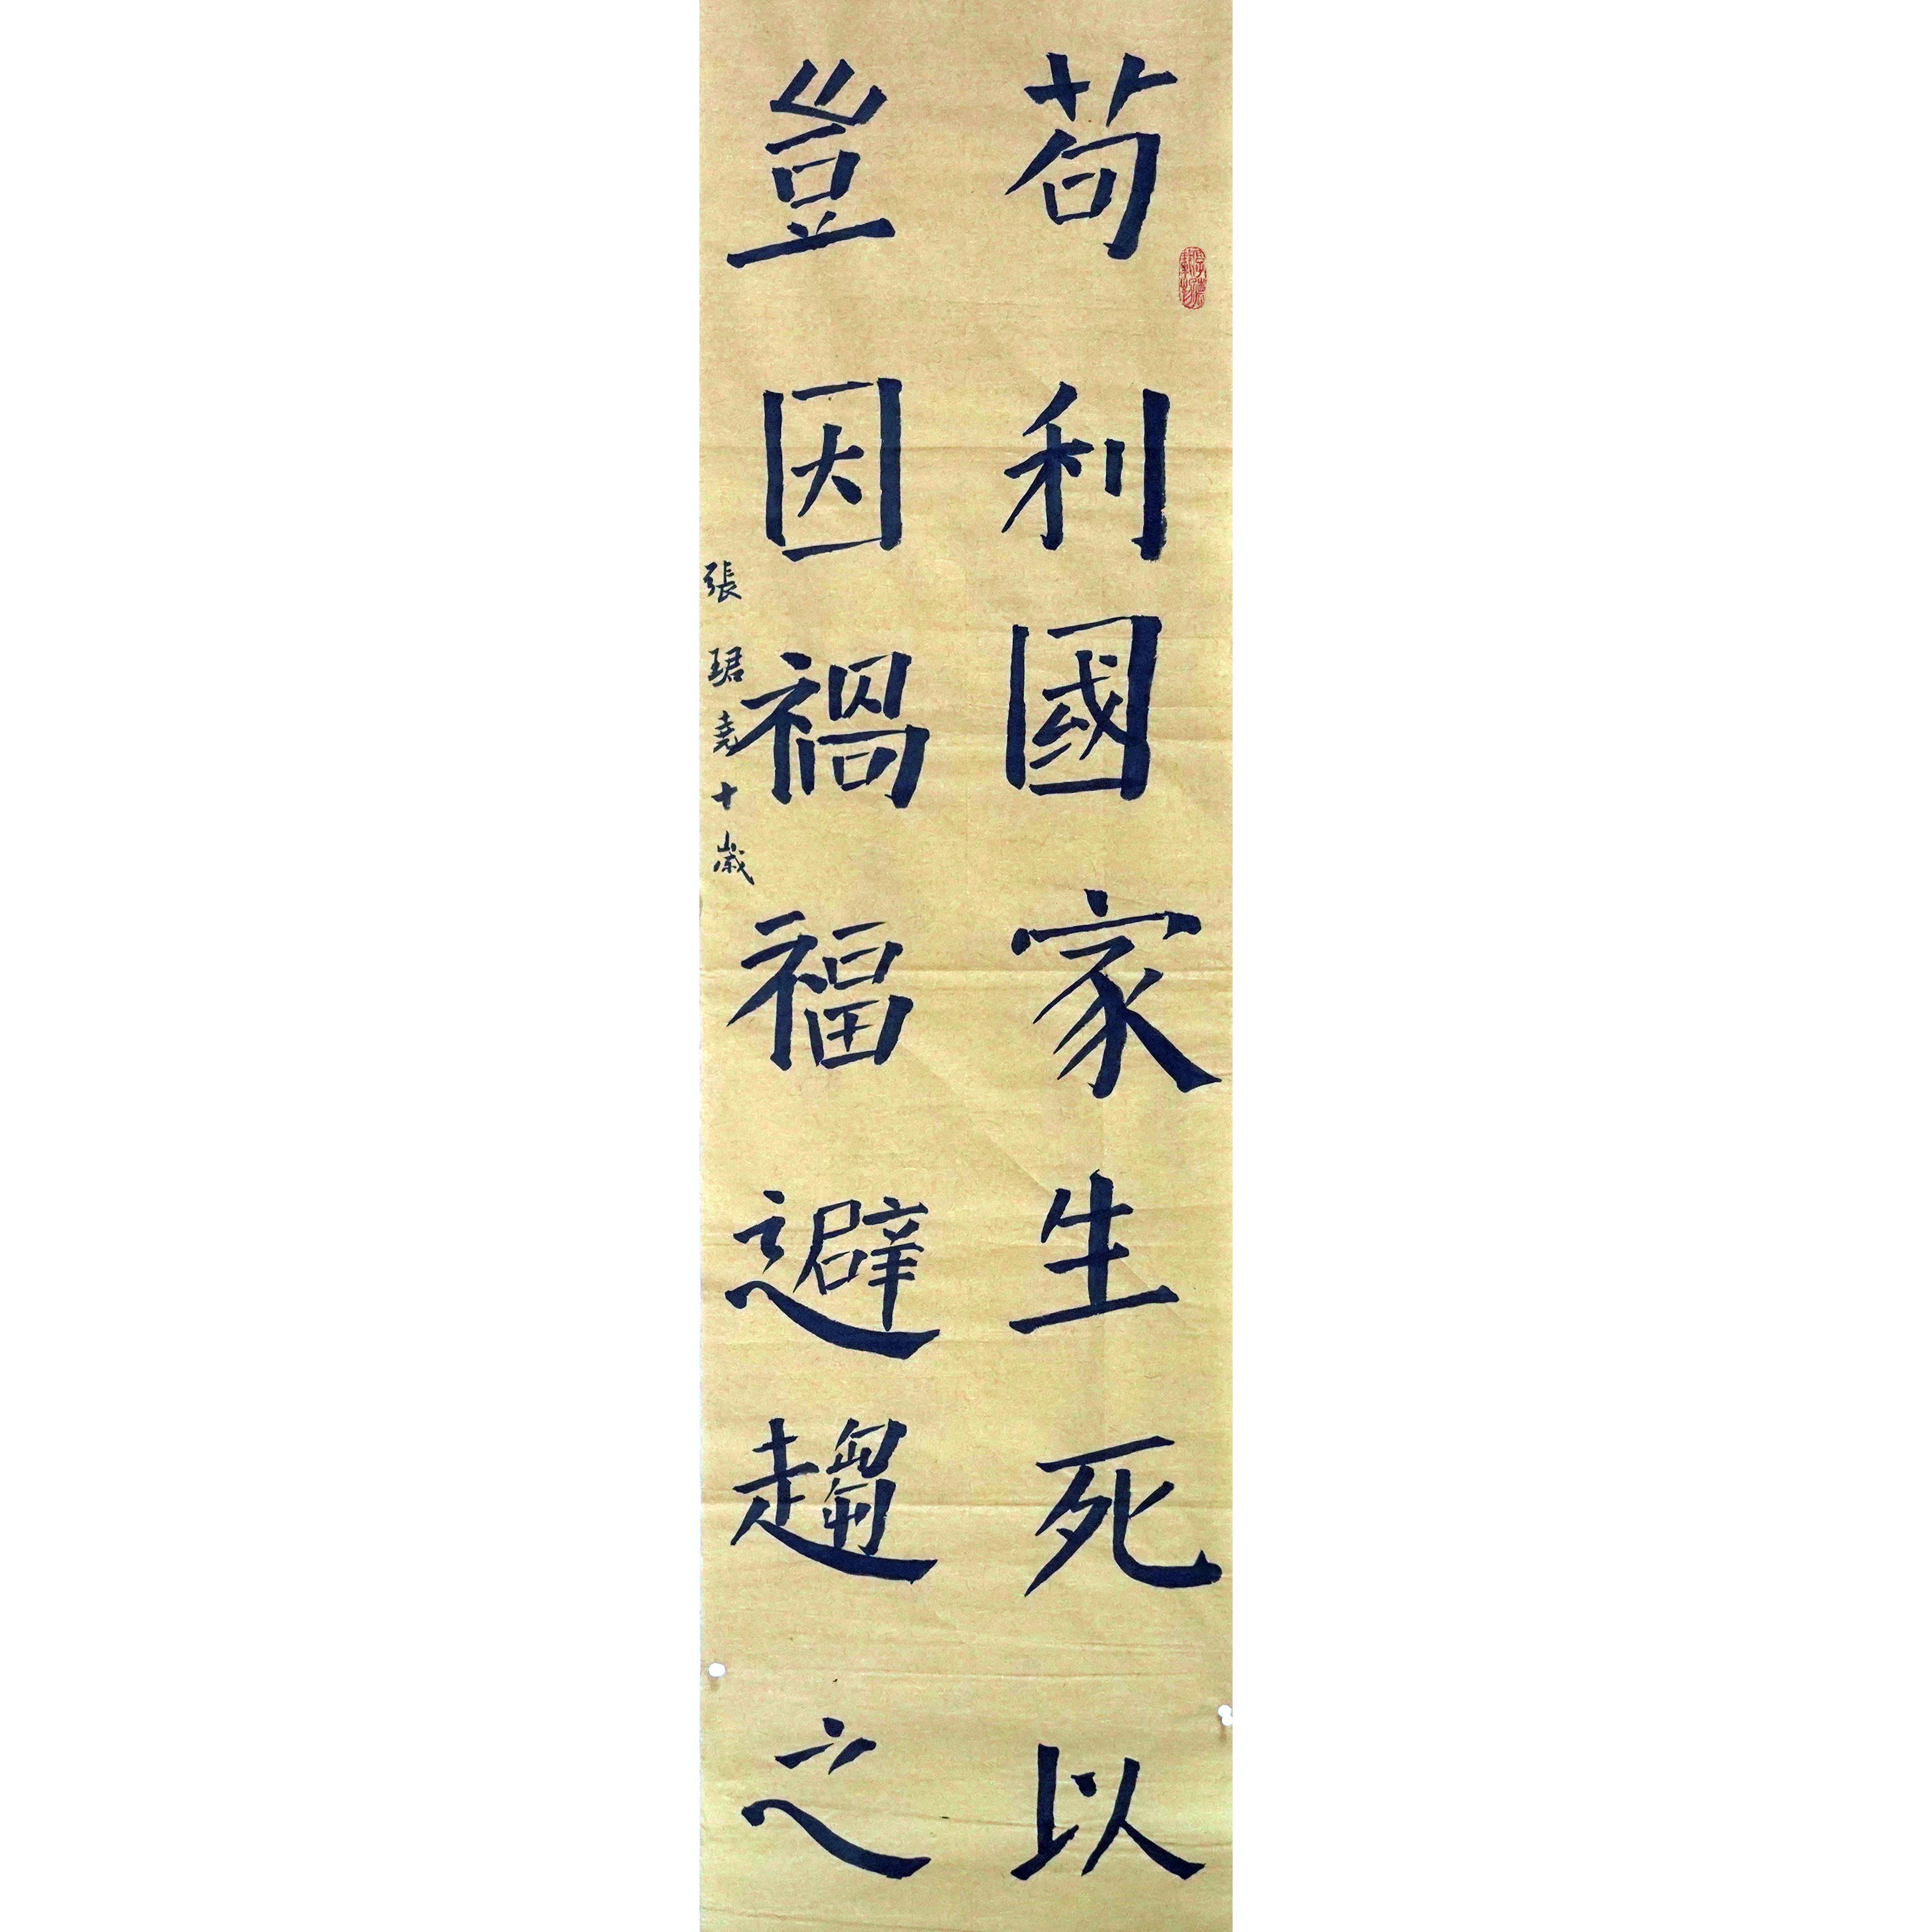 苟利國家生死以
豈因禍福避趨之
張珺堯十歲